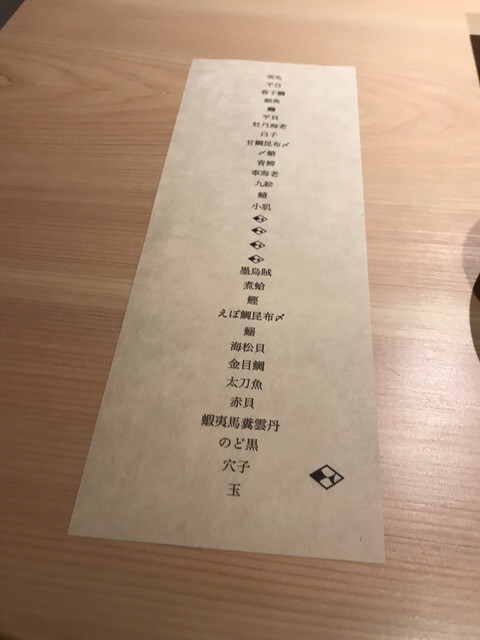 突先
平目
春子鯛
平貝
牡丹海老
白子
甘鯛昆布〆
〆鯖
青柳
車海老
九絵
小肌
墨烏賊
煮蛤
鰹
えぼ鯛昆布〆
鰯
海松貝
金目鯛
太刀魚
赤貝
蝦夷馬糞雲丹
のど黒
穴子
玉